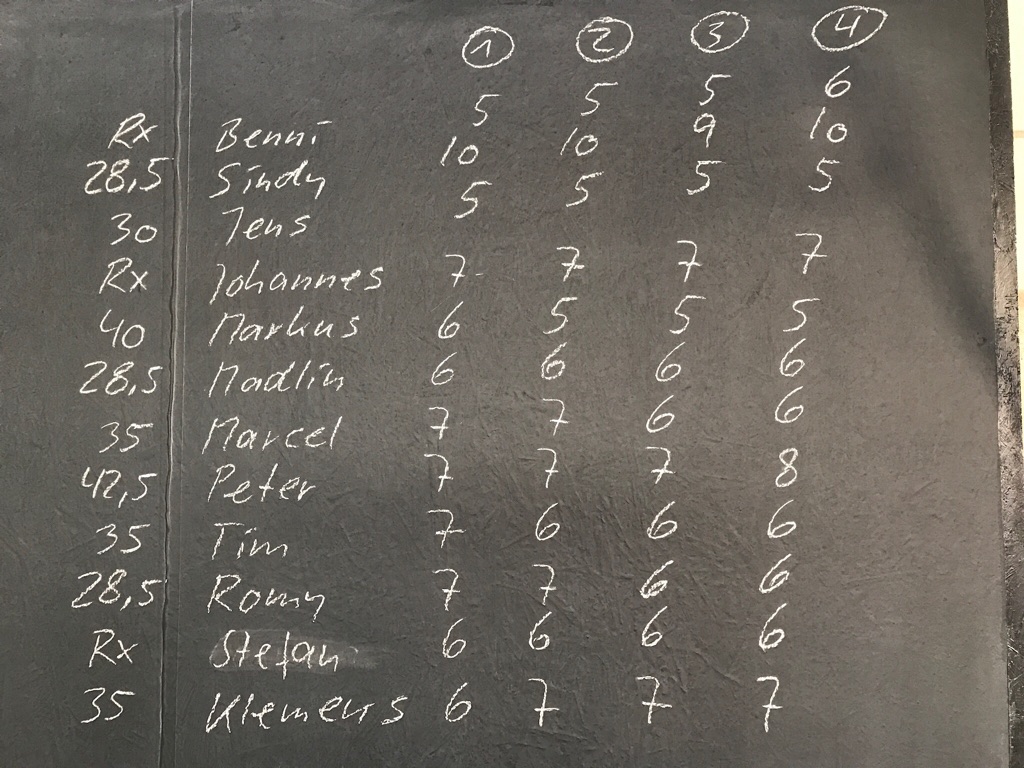 1 2 3 4
Rx Benni 5 5 5 6
28,5 Sindy 10 10 9 10
30 Jens 5 5 5 5
Rx Johannes 7 7 7 7
40 Markus 6 5 5 5
28,5 Madlin 6 6 6 6
35 Marcel 7 7 6 6
42,5 Peter 7 7 7 8
35 Tim 7 6 6 6
28,5 Romy 7 7 6 6
Rx Stefan 6 6 6 6
35 Klemens 6 7 7 7